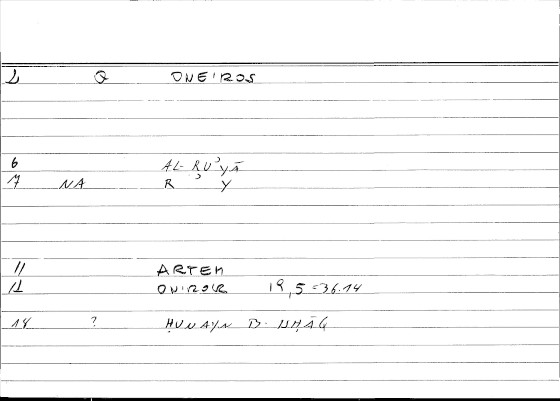 2 Q ONEIROS
6 AL-RUʾYĀ
7 NA R ʾ Y
11 ARTEM
12 ONIROCR 19,5=36.14
14 ? ḤUNAYN B. ISḤĀQ